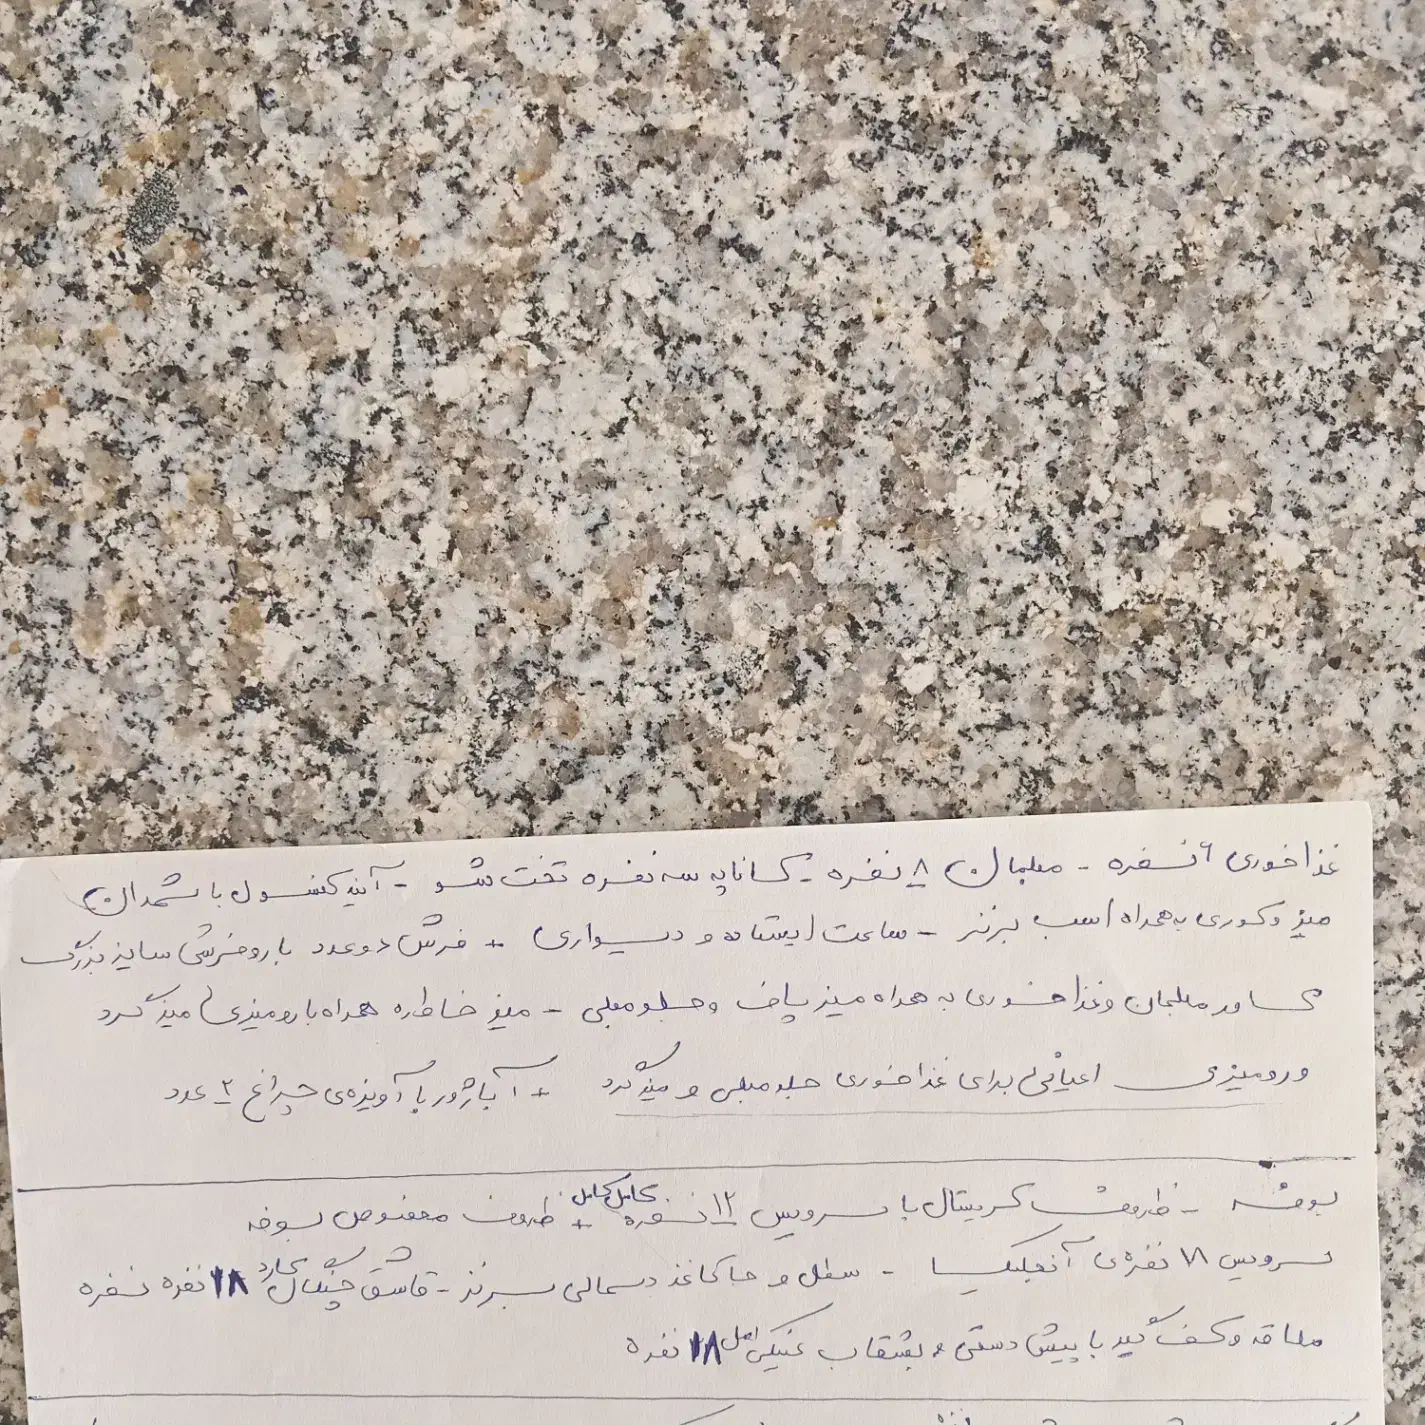 غذاخوری ۶ نفره - مبلمان ۸ نفره - کاناپه سه نفره تخت شو - آینه کنسول با شمعدان
میز دکوری به همراه اسب برنز - ساعت ایستاده و دیواری + فرش دو عدد با روفرشی سایز بزرگ
کاور مبلمان و غذاخوری به همراه میز پاف و جلو مبلی - میز خاطره همراه با رومیزی / میز گرد
و رومیزی اعیانی برای غذاخوری جلو مبلی و میز گرد + آباژور با آویزه‌ی چراغ ۲ عدد
بوفه - ظروف کریستال با سرویس ۱۲ نفره کامل کامل + ظروف مخصوص بوفه
سرویس ۱۸ نفره‌ی آنجلیکا - سطل و جا کاغذ دستمالی برنز - قاشق چنگال کارد ۱۸ نفره نفره
ملاقه و کفگیر با پیش دستی و بشقاب اصل ۱۸ نفره